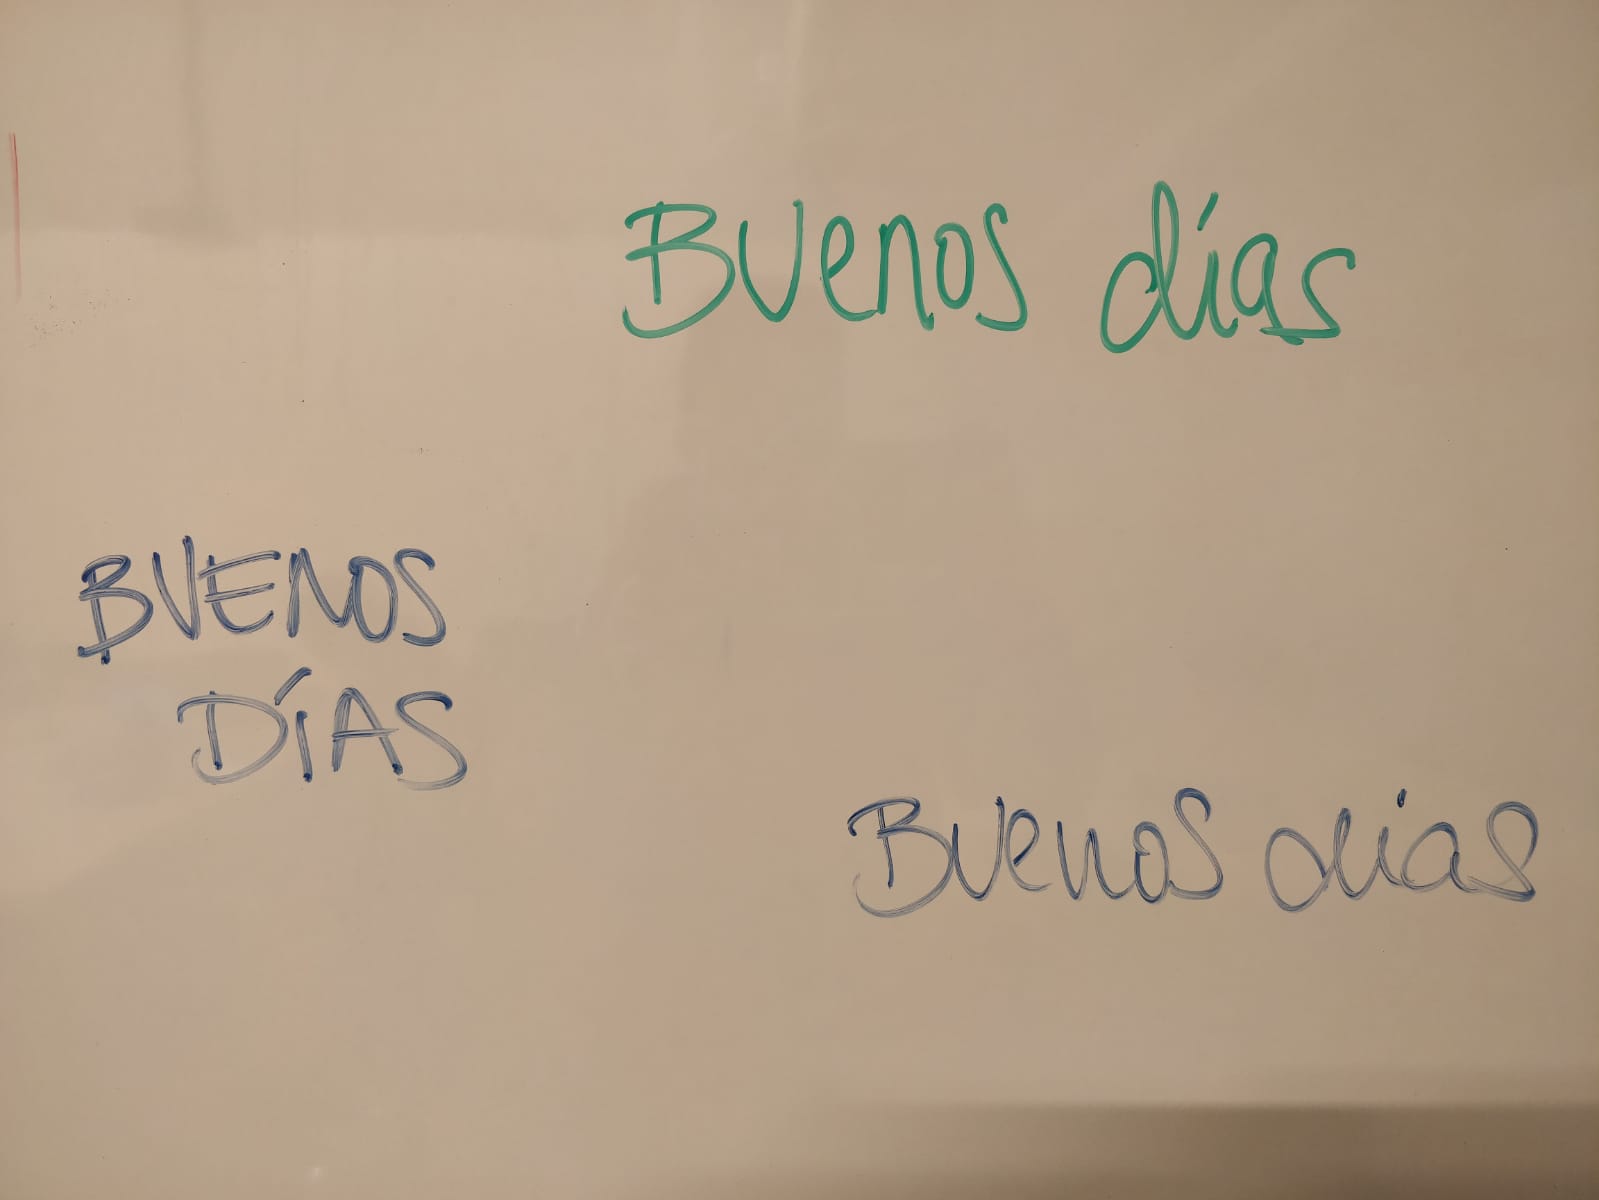 Buenos días
BUENOS
DÍAS
Buenos días